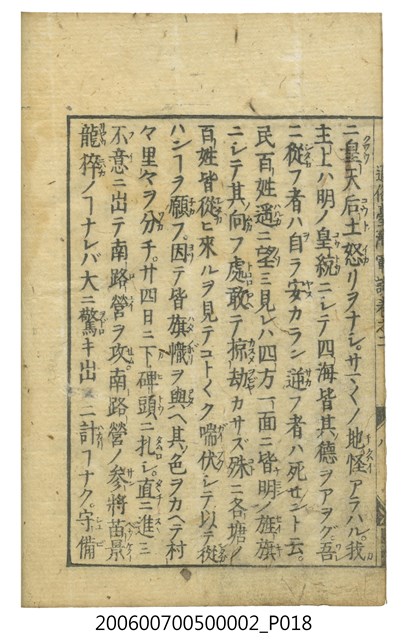 ニ皇天后土怒リヲナシ。サマ〱ノ地怪アラハル。我
主上ハ明ノ皇統ニシテ四海皆其德ヲアヲグ。吾
ニ從フ者ハ自ラ安カラン逆フ者ハ死セント云。
民百姓遥ニ望ミ見レハ四方一面ニ皆明ノ旌旗
ニシテ其向フ處敢テ掠劫カサズ殊ニ各塘ノ
百姓皆從ヒ來ルヲ見テコト〱ク喘伏シテ以テ從
ハンヿヲ願フ。因テ皆旗幟ヲ與ヘ其色ヲカヘテ村
々里々ヲ分チ。廿四日ニ下碑頭ニ扎シ。直ニ進ミ
不意ニ出テ南路營ヲ攻。南路營ノ參將苗景
龍猝ノヿナレバ大ニ驚キ出ニ計ヿナク。守備
200600700500002_P018